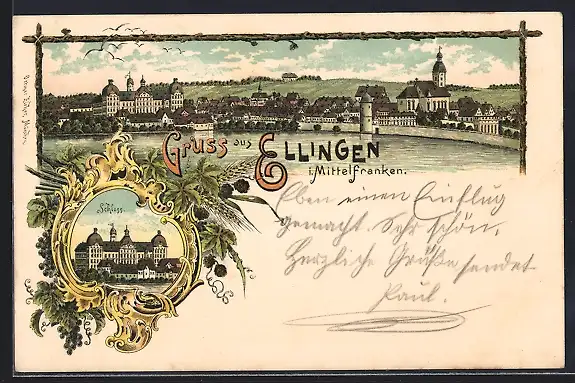 Gruss aus ELLINGEN
i. Mittelfranken.
Schloss.
Eben einen Einflug
gemacht. Sehr schön.
Herzliche Grüße sendet
Paul.